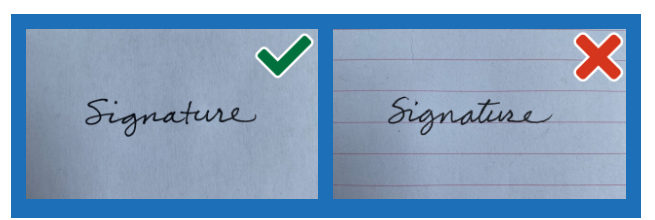 Signature
Signature